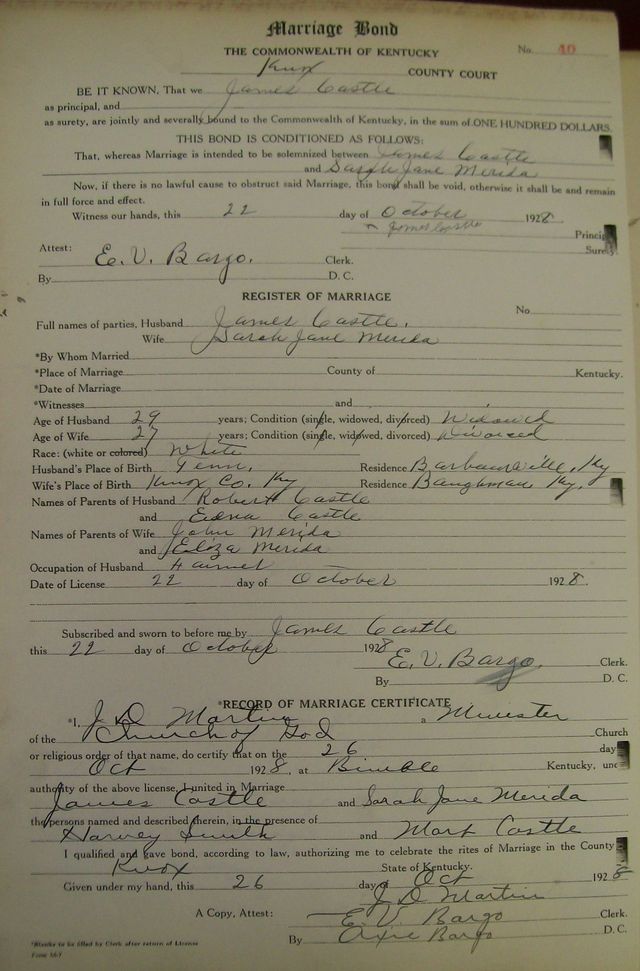 Marriage Bond
THE COMMONWEALTH OF KENTUCKY No. 40
Knox COUNTY COURT
BE IT KNOWN, That we James Castle
as principal, and
as surety, are jointly and severally bound to the Commonwealth of Kentucky, in the sum of ONE HUNDRED DOLLARS.
THIS BOND IS CONDITIONED AS FOLLOWS:
That, whereas Marriage is intended to be solemnized between James Castle
and Sarah Jane Merida
Now, if there is no lawful cause to obstruct said Marriage, this bond shall be void, otherwise it shall be and remain
in full force and effect.
Witness our hands, this 22 day of October 1928
James Castle Princip
Attest: Surety.
E. V. Bargo. Clerk.
By D. C.
REGISTER OF MARRIAGE
No.
Full names of parties, Husband James Castle.
Wife Sarah Jane Merida
*By Whom Married
*Place of Marriage County of Kentucky.
*Date of Marriage
*Witnesses and
Age of Husband 29 years; Condition (single, widowed, divorced) Widowed
Age of Wife 27 years; Condition (single, widowed, divorced) Divorced
Race: (white or colored) White
Husband's Place of Birth Tenn. Residence Barbourville, Ky
Wife's Place of Birth Knox Co. Ky Residence Baughman Ky.
Names of Parents of Husband Robert Castle
and Edna Castle
Names of Parents of Wife John Merida
and Eliza Merida
Occupation of Husband Farmer
Date of License 22 day of October 1928.
Subscribed and sworn to before me by James Castle
this 22 day of October 1928
E. V. Bargo. Clerk.
By D. C.
*RECORD OF MARRIAGE CERTIFICATE
*I, J D Martin a Minister
of the Church of God Church
or religious order of that name, do certify that on the 26 day
Oct 1928, at Bimble Kentucky, unde
authority of the above license, I united in Marriage
James Castle and Sarah Jane Merida
the persons named and described therein, in the presence of
Harvey Smith and Mart Castle
I qualified and gave bond, according to law, authorizing me to celebrate the rites of Marriage in the County
Knox State of Kentucky.
Given under my hand, this 26 day of Oct 1928
J D Martin
A Copy, Attest: E V Bargo Clerk.
By Oxie Bargo D. C.
*Blanks to be filled by Clerk after return of License